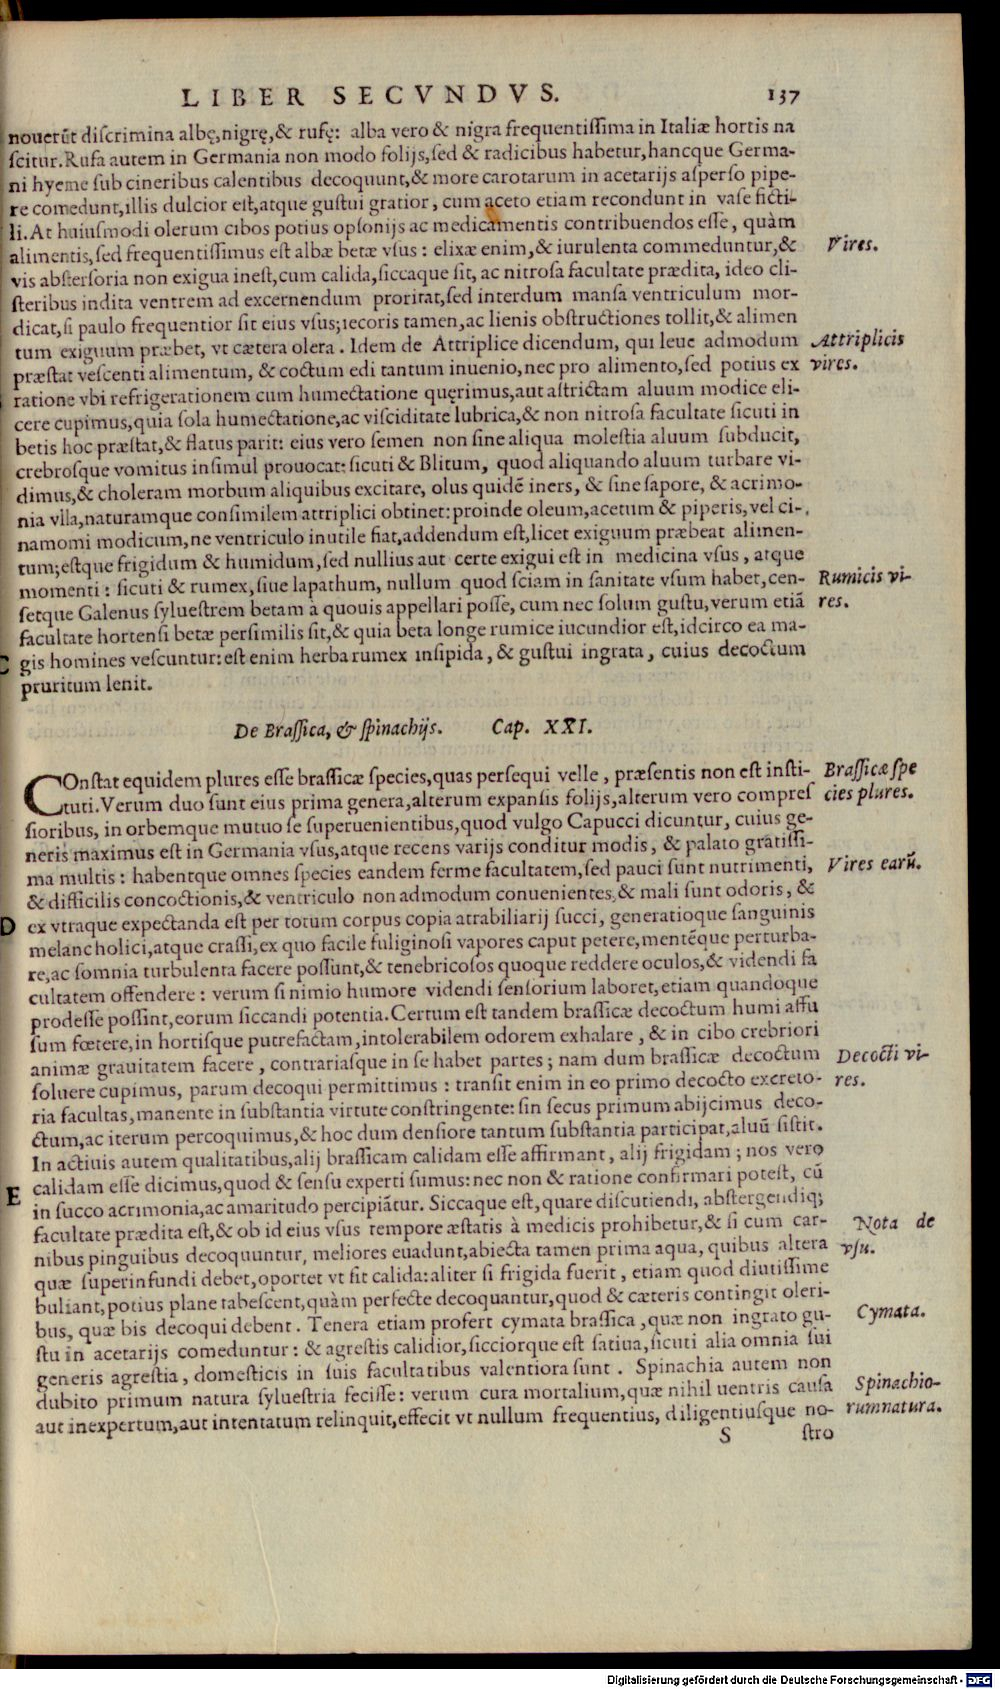 LIBER SECVNDVS. 137
nouerũt discrimina albę,nigrę,& rufę: alba vero & nigra frequentissima in Italiæ hortis na
scitur.Rufa autem in Germania non modo folijs,sed & radicibus habetur,hancque Germa-
ni hyeme sub cineribus calentibus decoquunt,& more carotarum in acetarijs asperso pipe-
re comedunt,illis dulcior est,atque gustui gratior, cum aceto etiam recondunt in vase ficti-
li. At huiusmodi olerum cibos potius opsonijs ac medicamentis contribuendos esse, quàm
alimentis,sed frequentissimus est albæ betæ vsus: elixæ enim,& iurulenta commeduntur,&
Vires.
vis abstersoria non exigua inest,cum calida,siccaque sit, ac nitrosa facultate prædita, ideo cli-
steribus indita ventrem ad excernendum proritat,sed interdum mansa ventriculum mor-
dicat,si paulo frequentior sit eius vsus;iecoris tamen,ac lienis obstructiones tollit,& alimen
tum exiguum præbet, vt cætera olera. Idem de Attriplice dicendum, qui leue admodum
Attriplicis
præstat vescenti alimentum, & coctum edi tantum inuenio,nec pro alimento,sed potius ex
vires.
ratione vbi refrigerationem cum humectatione quęrimus,aut astrictam aluum modice eli-
cere cupimus,quia sola humectatione,ac visciditate lubrica,& non nitrosa facultate sicuti in
betis hoc præstat,& flatus parit: eius vero semen non sine aliqua molestia aluum subducit,
crebrosque vomitus insimul prouocat: sicuti & Blitum, quod aliquando aluum turbare vi-
dimus,& choleram morbum aliquibus excitare, olus quidẽ iners, & sine sapore, & acrimo-
nia vlla,naturamque consimilem attriplici obtinet: proinde oleum,acetum & piperis,vel ci-
namomi modicum,ne ventriculo inutile fiat,addendum est,licet exiguum præbeat alimen-
tum;estque frigidum & humidum,sed nullius aut certe exigui est in medicina vsus, atque
momenti: sicuti & rumex,siue lapathum, nullum quod sciam in sanitate vsum habet,cen-
Rumicis vi-
setque Galenus syluestrem betam à quouis appellari posse, cum nec solum gustu,verum etiã
res.
facultate hortensi betæ persimilis sit,& quia beta longe rumice iucundior est,idcirco ea ma-
C gis homines vescuntur: est enim herba rumex insipida, & gustui ingrata, cuius decoctum
pruritum lenit.
De Brassica, & spinachijs. Cap. XXI.
COnstat equidem plures esse brassicæ species,quas persequi velle, præsentis non est insti-
Brassicæ spe
tuti. Verum duo sunt eius prima genera,alterum expansis folijs,alterum vero compres
cies plures.
sioribus, in orbemque mutuo se superuenientibus,quod vulgo Capucci dicuntur, cuius ge-
neris maximus est in Germania vsus,atque recens varijs conditur modis, & palato gratissi-
ma multis: habentque omnes species eandem ferme facultatem,sed pauci sunt nutrimenti,
Vires earũ.
& difficilis concoctionis,& ventriculo non admodum conuenientes,& mali sunt odoris, &
D ex vtraque expectanda est per totum corpus copia atrabiliarij succi, generatioque sanguinis
melancholici,atque crassi,ex quo facile fuliginosi vapores caput petere,mentẽque perturba-
re,ac somnia turbulenta facere possunt,& tenebricosos quoque reddere oculos,& videndi fa
cultatem offendere: verum si nimio humore videndi sensorium laboret,etiam quandoque
prodesse possint,eorum siccandi potentia. Certum est tandem brassicæ decoctum humi affu
sum fœtere,in hortisque putrefactam,intolerabilem odorem exhalare, & in cibo crebriori
animæ grauitatem facere, contrariasque in se habet partes; nam dum brassicæ decoctum
Decocti vi-
soluere cupimus, parum decoqui permittimus: transit enim in eo primo decocto excreto-
res.
ria facultas,manente in substantia virtute constringente: sin secus primum abijcimus deco-
ctum,ac iterum percoquimus,& hoc dum densiore tantum substantia participat,aluũ sistit.
In actiuis autem qualitatibus,alij brassicam calidam esse affirmant, alij frigidam; nos vero
E calidam esse dicimus,quod & sensu experti sumus: nec non & ratione confirmari potest, cũ
in succo acrimonia,ac amaritudo percipiãtur. Siccaque est,quare discutiendi, abstergendiq;
facultate prædita est,& ob id eius vsus tempore æstatis à medicis prohibetur,& si cum car-
Nota de
nibus pinguibus decoquuntur, meliores euadunt,abiecta tamen prima aqua, quibus altera
vsu.
quæ superinfundi debet,oportet vt sit calida: aliter si frigida fuerit, etiam quod diutissime
buliant,potius plane tabescent,quàm perfecte decoquantur,quod & cæteris contingit oleri-
bus, quæ bis decoqui debent. Tenera etiam profert cymata brassica,quæ non ingrato gu-
Cymata.
stu in acetarijs comeduntur: & agrestis calidior,sicciorque est satiua,sicuti alia omnia sui
generis agrestia, domesticis in suis facultatibus valentiora sunt. Spinachia autem non
dubito primum natura syluestria fecisse: verum cura mortalium,quæ nihil uentris causa
Spinachio-
aut inexpertum,aut intentatum relinquit,effecit vt nullum frequentius, diligentiusque no-
rum natura.
S stro
Digitalisierung gefördert durch die Deutsche Forschungsgemeinschaft - DFG